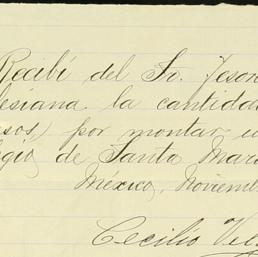 Recibí del Sr. Teso
lesiana la cantida
esos) por montar u
egio de Santa Mar
México, Noviem
Cecilio Vel